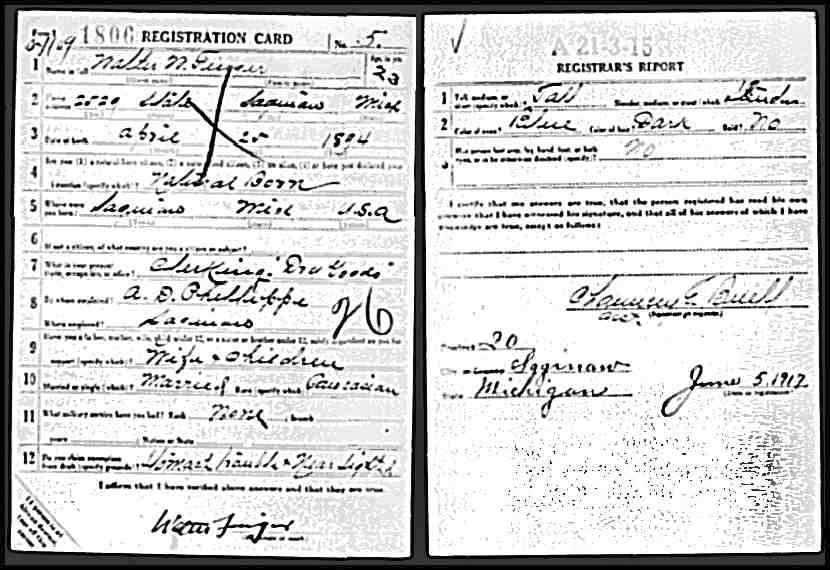 1806 REGISTRATION CARD No. 5
1 Name in full Age, in yrs. 23
2 2529 State Saginaw Mich
3 Date of birth April 25 1894
4 Are you (1) a natural born citizen, (2) a naturalized citizen, (3) an alien, (4) or have you declared your
intention (specify which)? Natural Born
5 Where were you born? Saginaw Mich U.S.A
6 If not a citizen, of what country are you a citizen or subject?
7 What is your present trade, occupation, or office? Clerking "Dry Goods"
8 By whom employed? A. D. Phillippe
Where employed? Saginaw 26
9 Have you a father, mother, wife, child under 12, or a sister or brother under 12, solely dependent on you for
support (specify which)? Wife & Children
10 Married or single (which)? Married Race (specify which)? Caucasian
11 What military service have you had? Rank None branch
years Nation or State
12 Do you claim exemption from draft (specify grounds)? Stomach trouble & Near Sighted
I affirm that I have verified above answers and that they are true.
Walter
A 21-3-15
REGISTRAR'S REPORT
1 Tall, medium, or short (specify which)? Tall Slender, medium, or stout (which)? Slender
2 Color of eyes? Blue Color of hair? Dark Bald? No
3 Has person lost arm, leg, hand, foot, or both eyes, or is he otherwise disabled (specify)? No
I certify that my answers are true, that the person registered has read his own
answers, that I have witnessed his signature, and that all of his answers of which I have
knowledge are true, except as follows:
Chauncey E. Buell
(Signature of registrar)
Precinct 20
City or County Saginaw
State Michigan
June 5, 1917
(Date of registration)